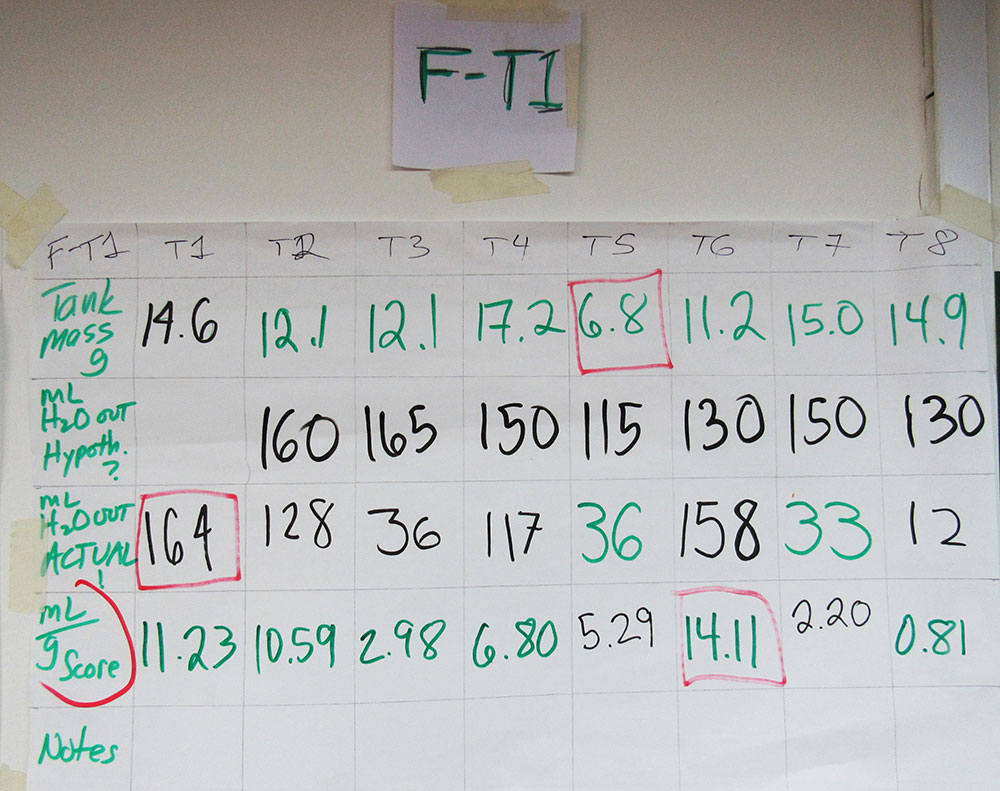 F-T1
F-T1 T1 T2 T3 T4 T5 T6 T7 T8
Tank
mass
g
14.6 12.1 12.1 17.2 6.8 11.2 15.0 14.9
mL
H2O OUT
Hypoth.
?
160 165 150 115 130 150 130
mL
H2O OUT
ACTUAL
!
164 128 36 117 36 158 33 12
mL
g
Score
11.23 10.59 2.98 6.80 5.29 14.11 2.20 0.81
Notes